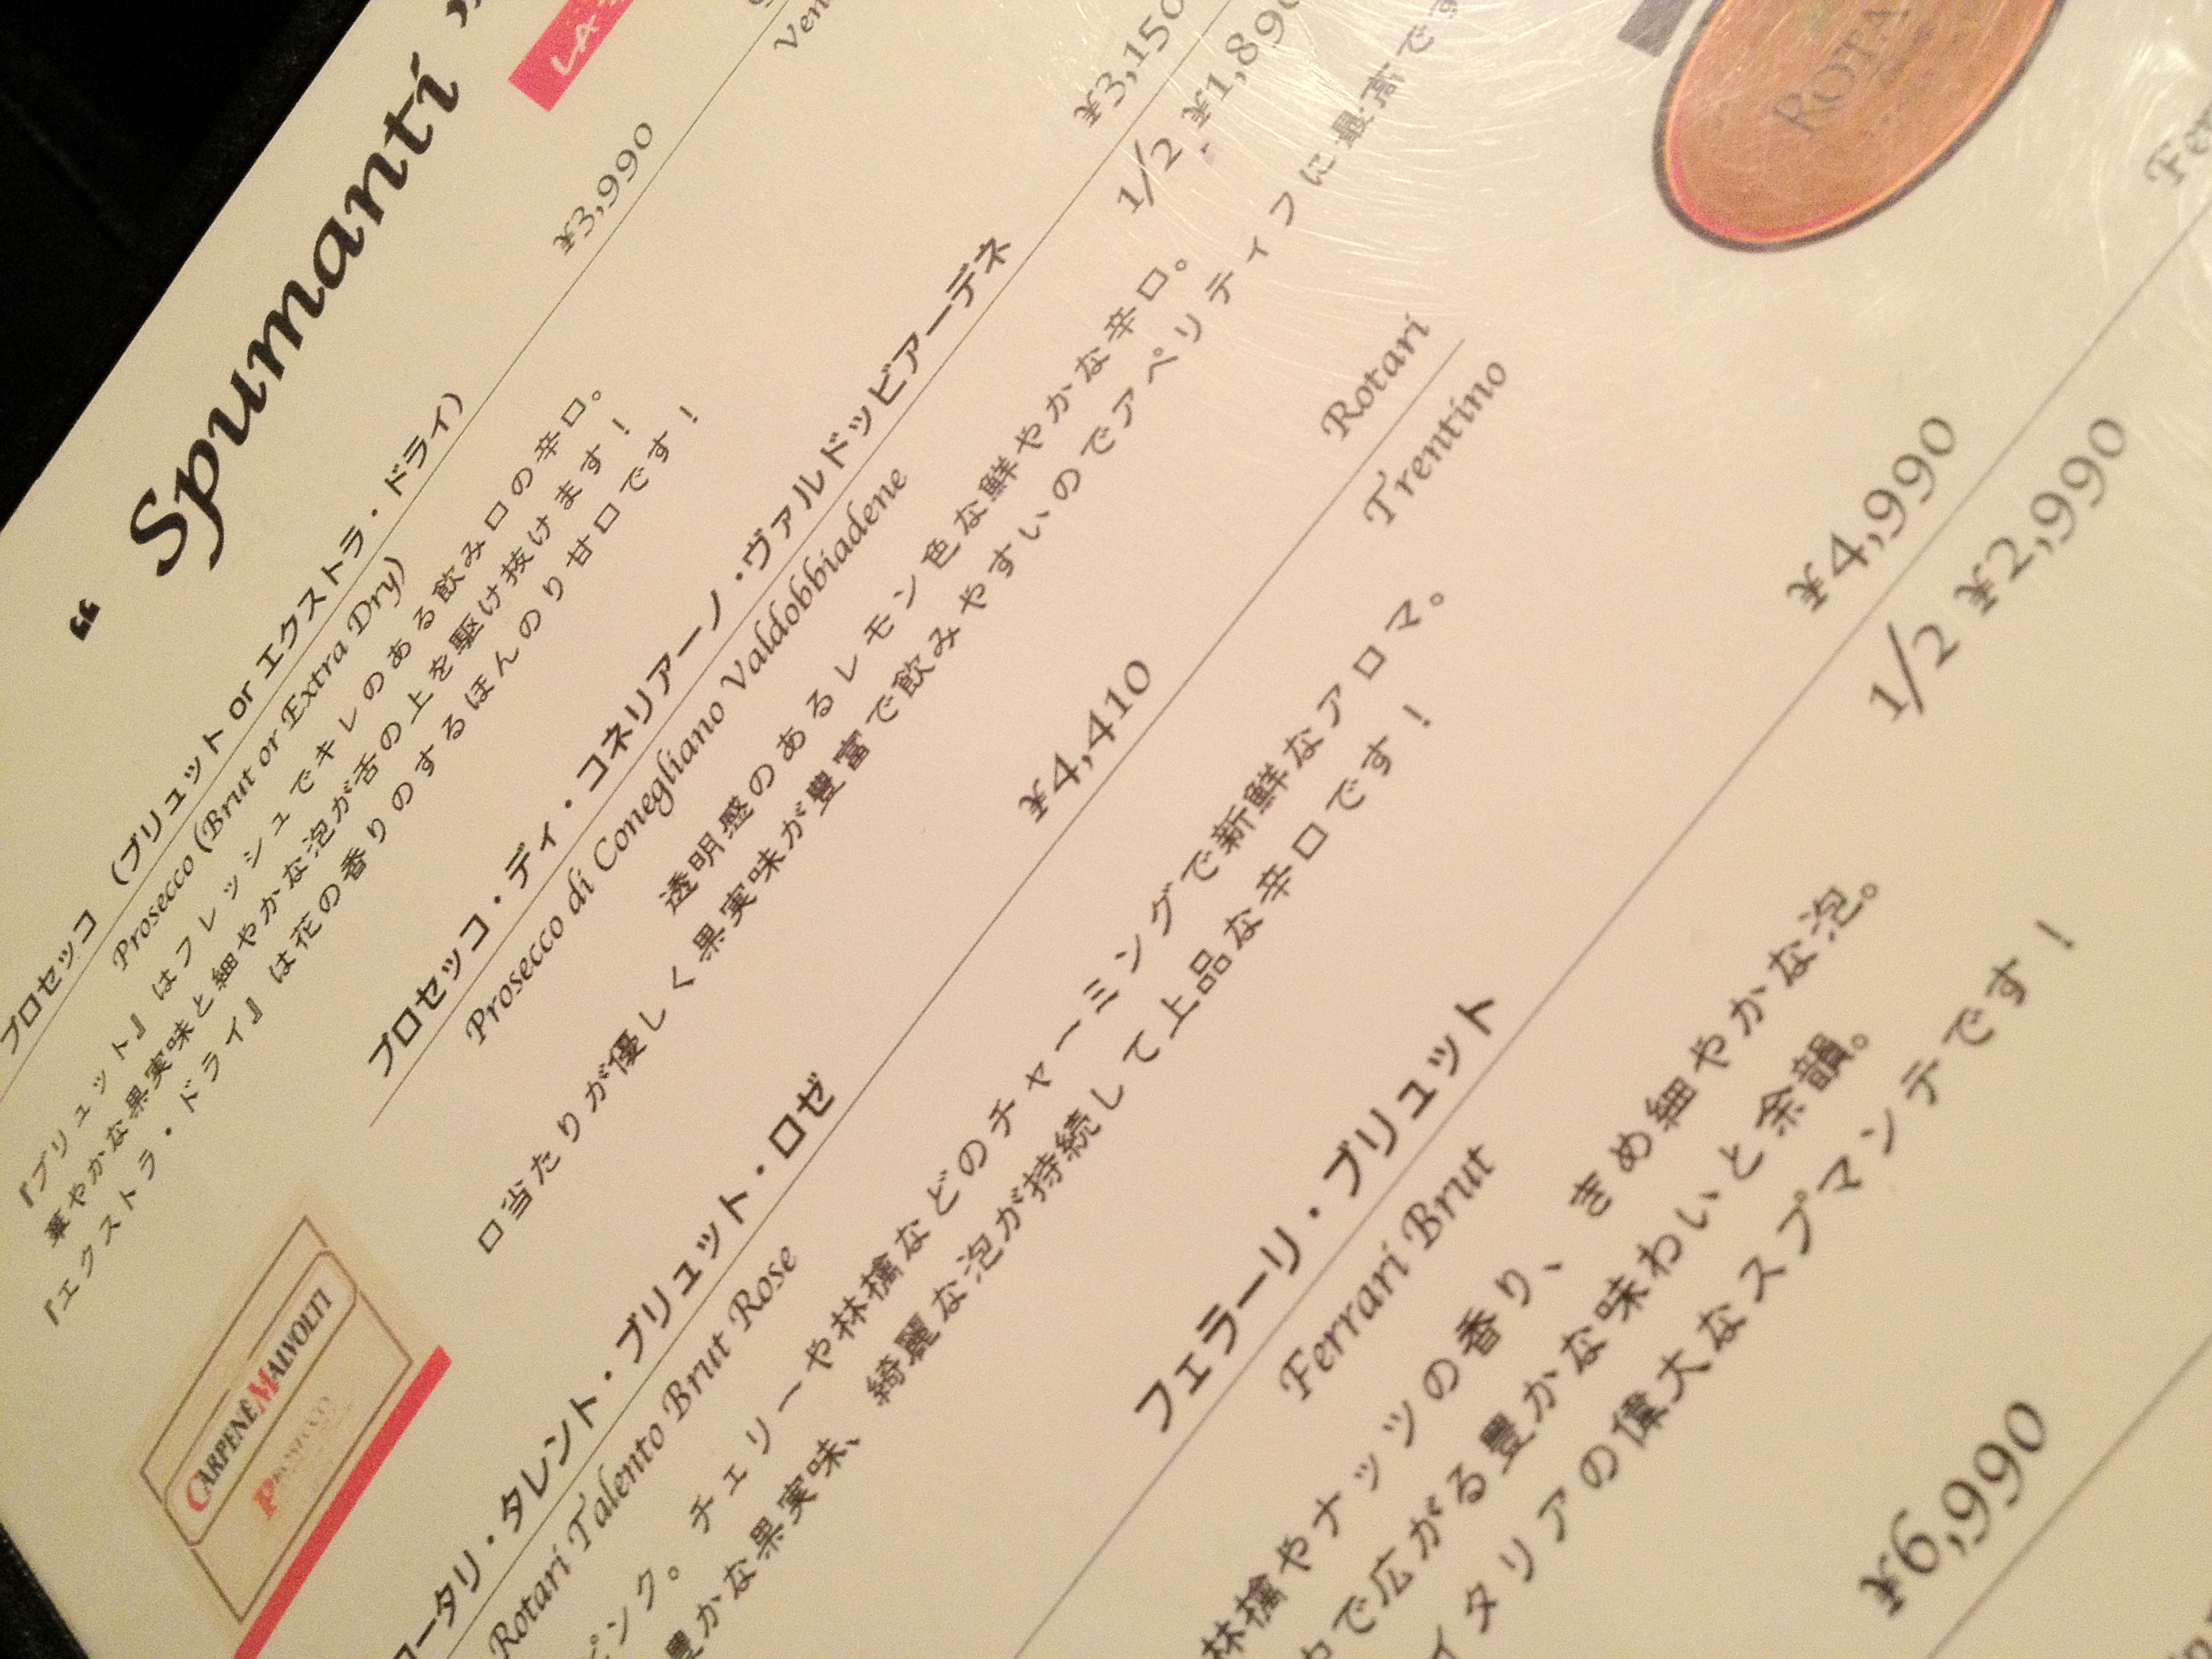 “ Spumanti ”
プロセッコ (ブリュット or エクストラ・ドライ) ¥3,990
Prosecco (Brut or Extra Dry)
『ブリュット』はフレッシュでキレのある飲み口の辛口。
華やかな果実味と細やかな泡が舌の上を駆け抜けます！
『エクストラ・ドライ』は花の香りのするほんのり甘口です！
CARPENE MALVOLTI
PROSECCO
プロセッコ・ディ・コネリアーノ・ヴァルドッビアーデネ ¥3,150
Prosecco di Conegliano Valdobbiadene 1/2 ¥1,890
透明感のあるレモン色な鮮やかな辛口。
口当たりが優しく果実味が豊富で飲みやすいのでアペリティフに最高です
ロータリ・タレント・ブリュット・ロゼ ¥4,410 Rotari
Rotari Talento Brut Rose Trentino
ピンク。チェリーや林檎などのチャーミングで新鮮なアロマ。
豊かな果実味、綺麗な泡が持続して上品な辛口です！
ROTA
フェラーリ・ブリュット ¥4,990
Ferrari Brut 1/2 ¥2,990
林檎やナッツの香り、きめ細やかな泡。
で広がる豊かな味わいと余韻。
イタリアの偉大なスプマンテです！
¥6,990